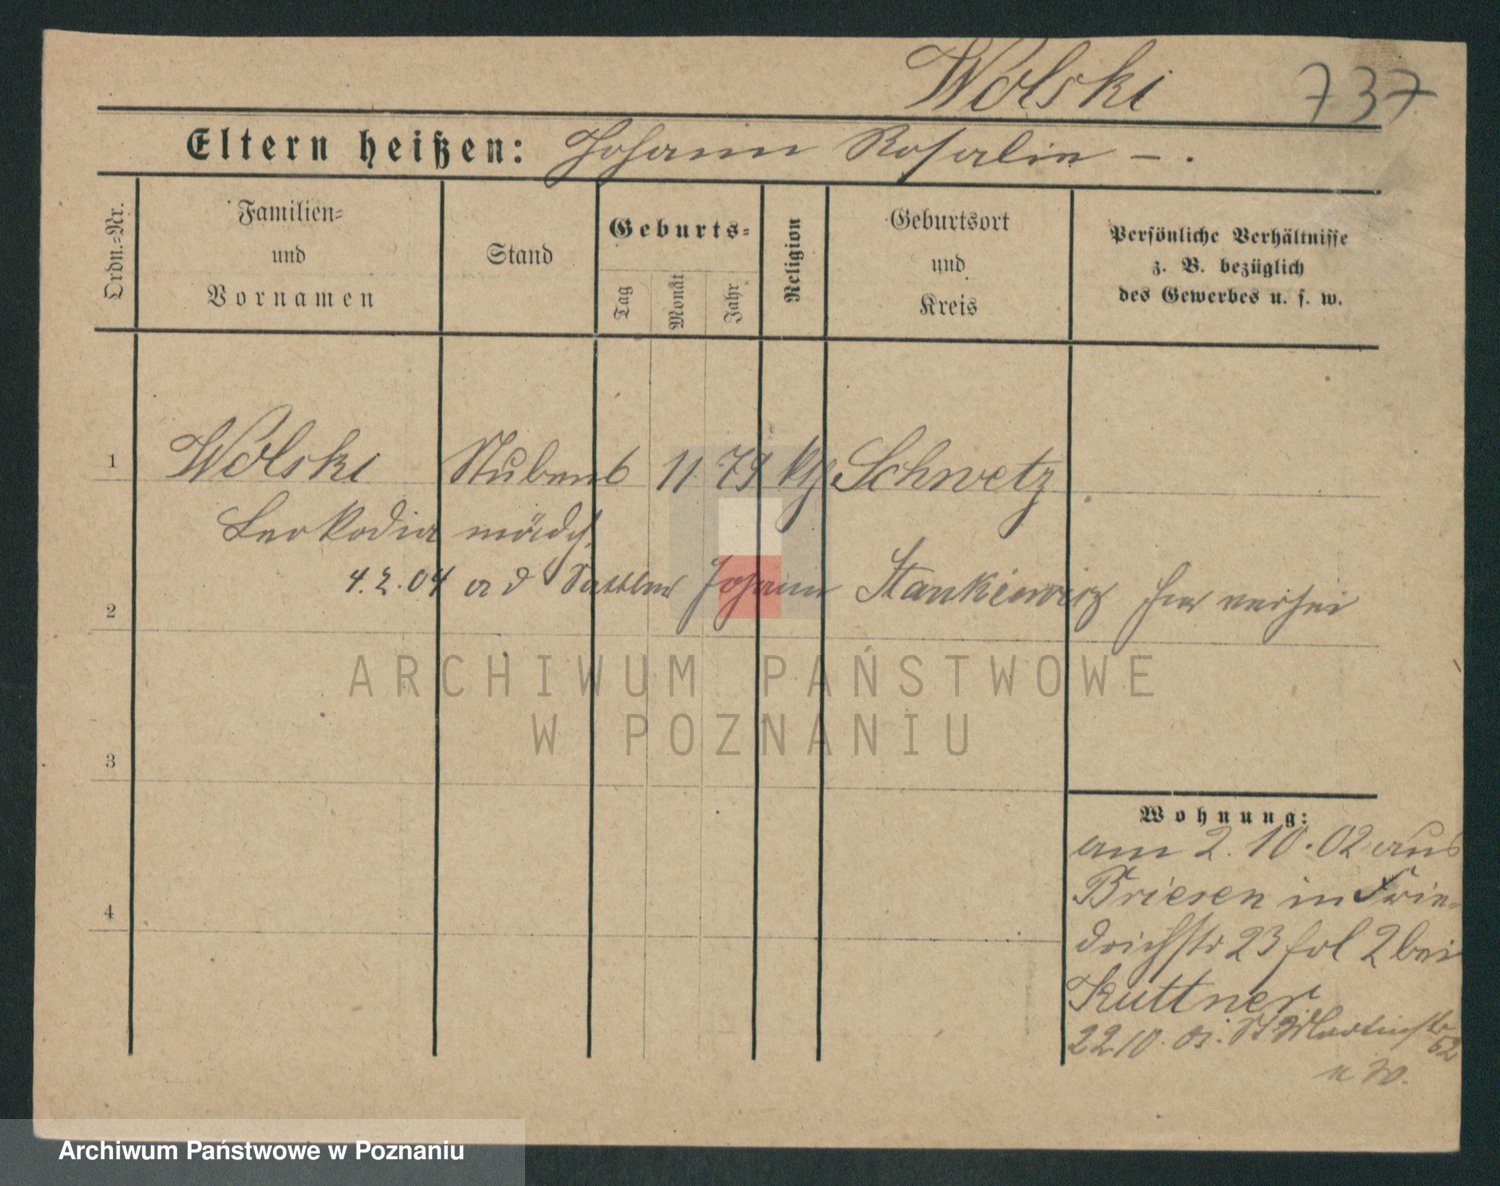 Wolski 737
Eltern heißen: Johann Rosalie - .
Ordn.=Nr.
Familien=
und
Vornamen
Stand
Geburts=
Tag
Monat
Jahr
Religion
Geburtsort
und
Kreis
Persönliche Verhältnisse
z. B. bezüglich
des Gewerbes u. s. w.
1 Wolski Stuben 6 11 79 kth Schwetz
Leokadia mädch.
4.2.04 a d Sattler Johann Stankiewicz hier verhei
2
3
4
ARCHIWUM PAŃSTWOWE
W POZNANIU
Wohnung:
am 2.10.02 aus
Briesen in Frie-
drichstr 23 fol 2 bei
Kuttner
22 10. St Martinstr
62
Archiwum Państwowe w Poznaniu